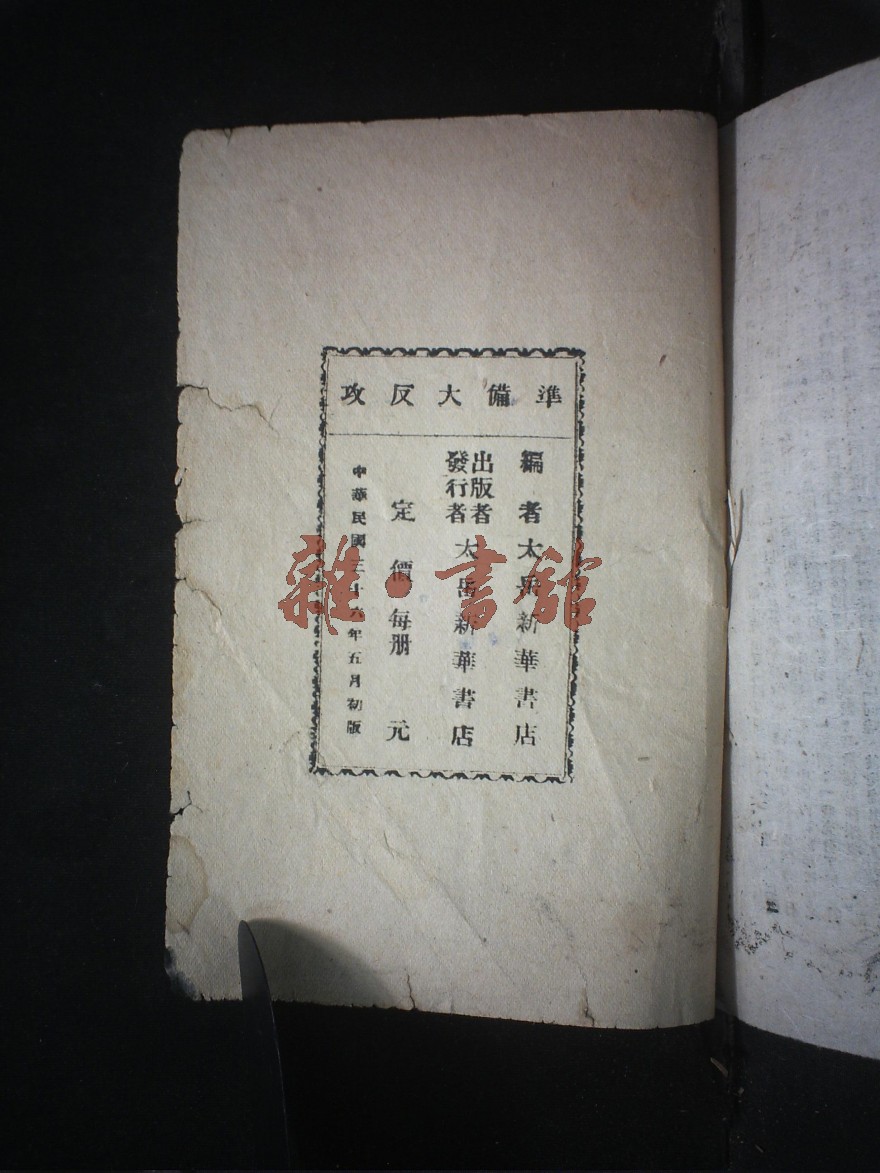 準備大反攻
編者太岳新華書店
出版者
發行者
太岳新華書店
定價每册 元
中華民國三十六年五月初版
雜·書館